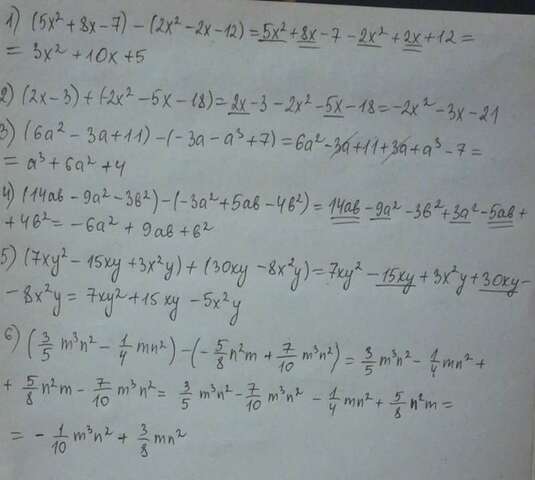 1) (5x² + 8x - 7) - (2x² - 2x - 12) = 5x² + 8x - 7 - 2x² + 2x + 12 =
= 3x² + 10x + 5
2) (2x - 3) + (-2x² - 5x - 18) = 2x - 3 - 2x² - 5x - 18 = -2x² - 3x - 21
3) (6a² - 3a + 11) - (-3a - a³ + 7) = 6a² - 3a + 11 + 3a + a³ - 7 =
= a³ + 6a² + 4
4) (14ab - 9a² - 3b²) - (-3a² + 5ab - 4b²) = 14ab - 9a² - 3b² + 3a² - 5ab +
+ 4b² = -6a² + 9ab + b²
5) (7xy² - 15xy + 3x²y) + (30xy - 8x²y) = 7xy² - 15xy + 3x²y + 30xy -
- 8x²y = 7xy² + 15xy - 5x²y
6) (3/5 m³n² - 1/4 mn²) - (-5/8 n²m + 7/10 m³n²) = 3/5 m³n² - 1/4 mn² +
+ 5/8 n²m - 7/10 m³n² = 3/5 m³n² - 7/10 m³n² - 1/4 mn² + 5/8 n²m =
= - 1/10 m³n² + 3/8 mn²